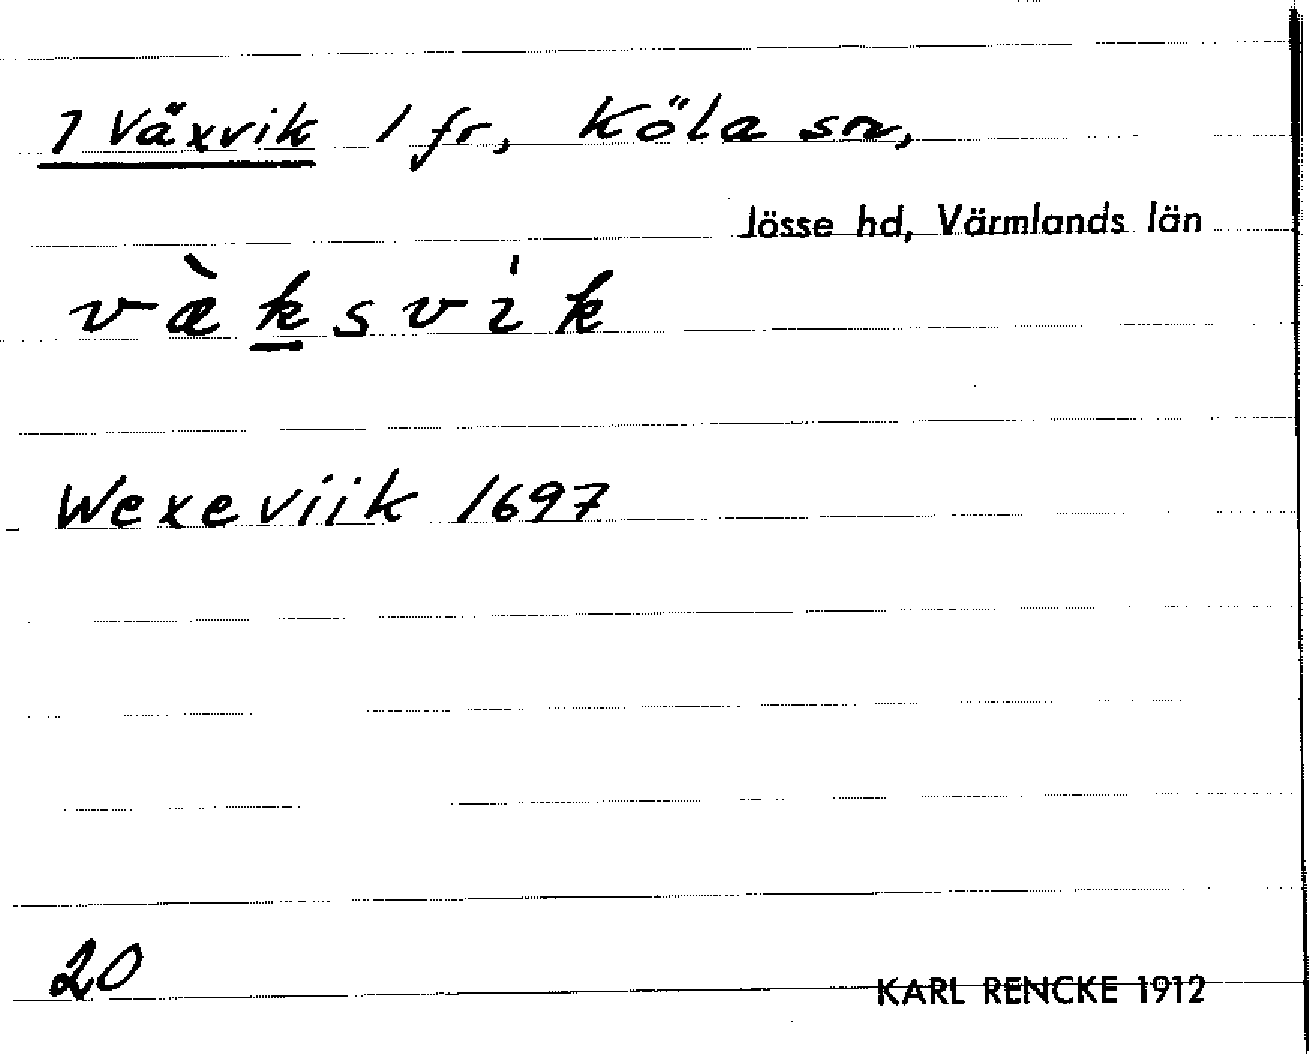 1 Växvik 1 fr, Köla sn,
Jösse hd, Värmlands län
væ̀ksvi̍k
Wexeviik 1697
20
KARL RENCKE 1912